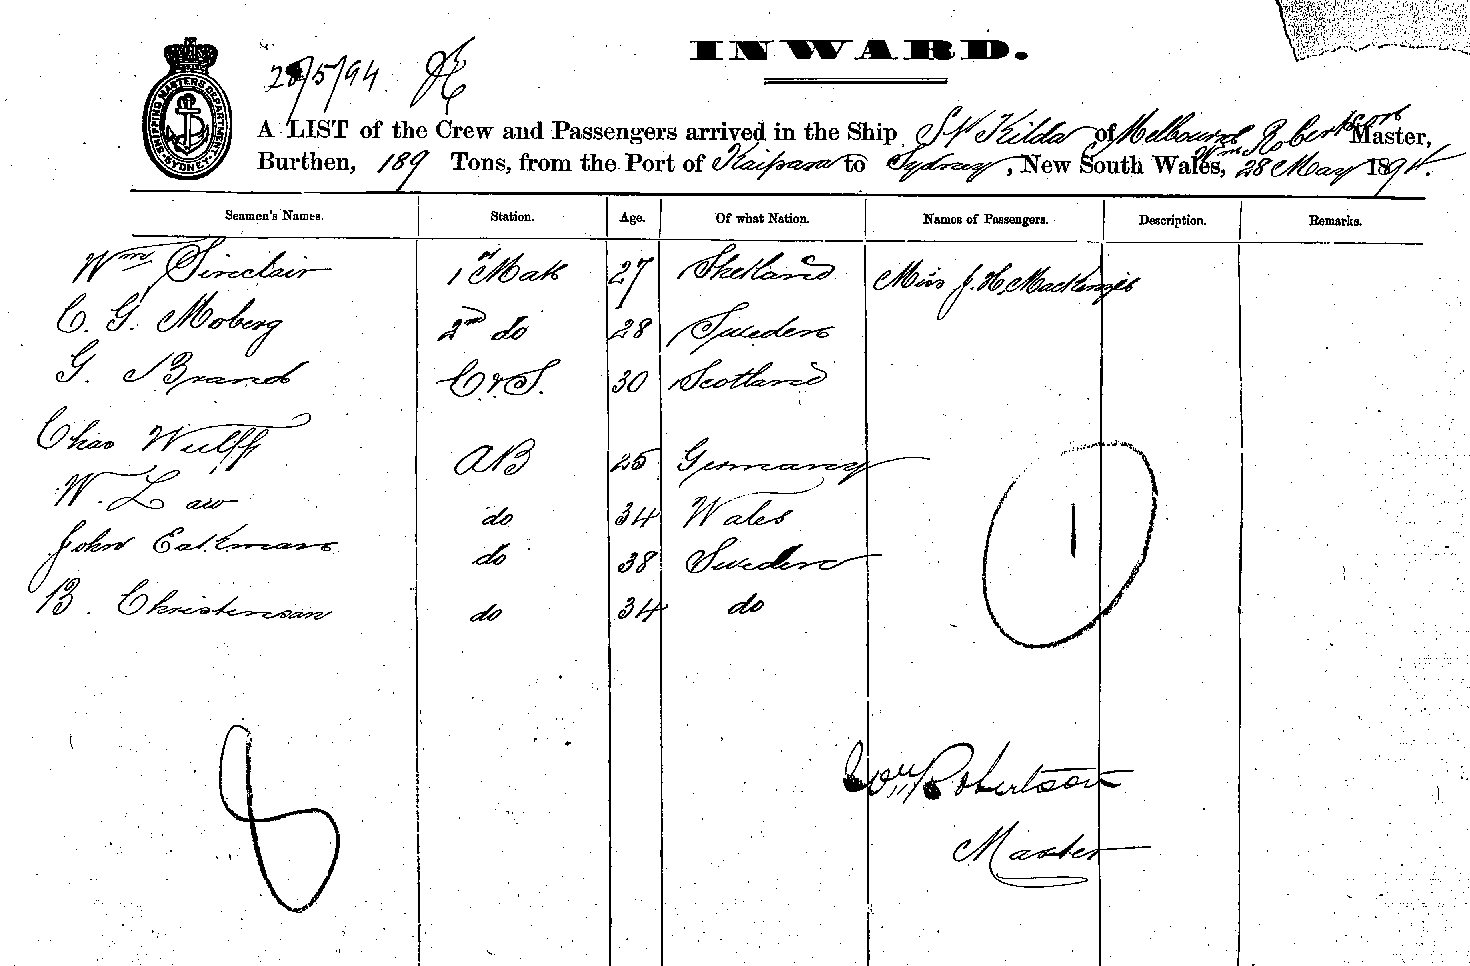 INWARD.
28/5/94
SHIPPING MASTERS DEPARTMENT SYDNEY
A LIST of the Crew and Passengers arrived in the Ship St Kilda of Melbourne Wm Robertson Master,
Burthen, 189 Tons, from the Port of Kaipara to Sydney, New South Wales, 28 May 1894.
Seamen's Names. Station. Age. Of what Nation. Names of Passengers. Description. Remarks.
Wm Sinclair 1st Mate 27 Shetland Miss J. H. MacKenzie
C. G. Moberg 2nd do 28 Sweden
G. Brand C & S. 30 Scotland
Chas Wulff AB 25 Germany
W. Law do 34 Wales
John do 38 Sweden
B. Christensen do 34 do
1
8
Wm Robertson
Master